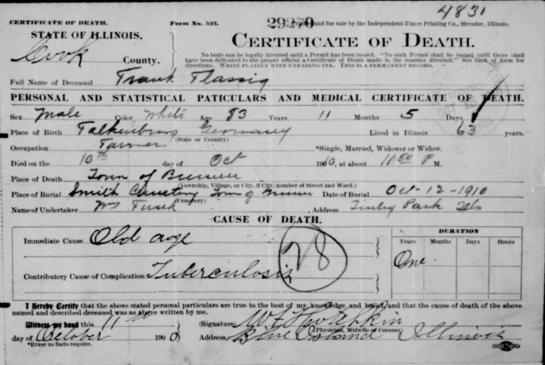 4831
CERTIFICATE OF DEATH. Form No. 522. and for sale by the Independent-Times Printing Co., Streator, Illinois.
STATE OF ILLINOIS, CERTIFICATE OF DEATH.
Cook County.
No body can be legally interred until a Permit has been issued. "No such Permit shall be issued until there shall
have been delivered to the proper official a Certificate of Death made in the manner directed." See back of form for
directions. WRITE PLAINLY WITH UNFADING INK. THIS IS A PERMANENT RECORD.
Full Name of Deceased Frank Flassig
PERSONAL AND STATISTICAL PATICULARS AND MEDICAL CERTIFICATE OF DEATH.
Sex Male Color White Age 83 Years 11 Months 5 Days
Place of Birth Germany Lived in Illinois 63 years.
(State or Country)
Occupation Farmer *Single, Married, Widower or Widow.
Died on the 10th day of Oct 1910, at M.
Place of Death Town of Bremen
(Township, Village, or City, if City, number of Street and Ward.)
Place of Burial Smith Cemetery Town of Bremen Date of Burial Oct-12-1910
(Cemetery)
Name of Undertaker Wm Address Tinley Park Ills
CAUSE OF DEATH.
DURATION
Immediate Cause Old age Years Months Days Hours
28 One
Contributory Cause of Complication Tuberculosis
I Hereby Certify that the above stated personal particulars are true to the best of my knowledge, and belief, and that the cause of death of the above
named and described deceased was as above written by me.
Witness my hand this 11th (Signature)
(Physician, Midwife or Coroner)
day of October 190 Address Blue Island Illinois
*Erase as facts require.